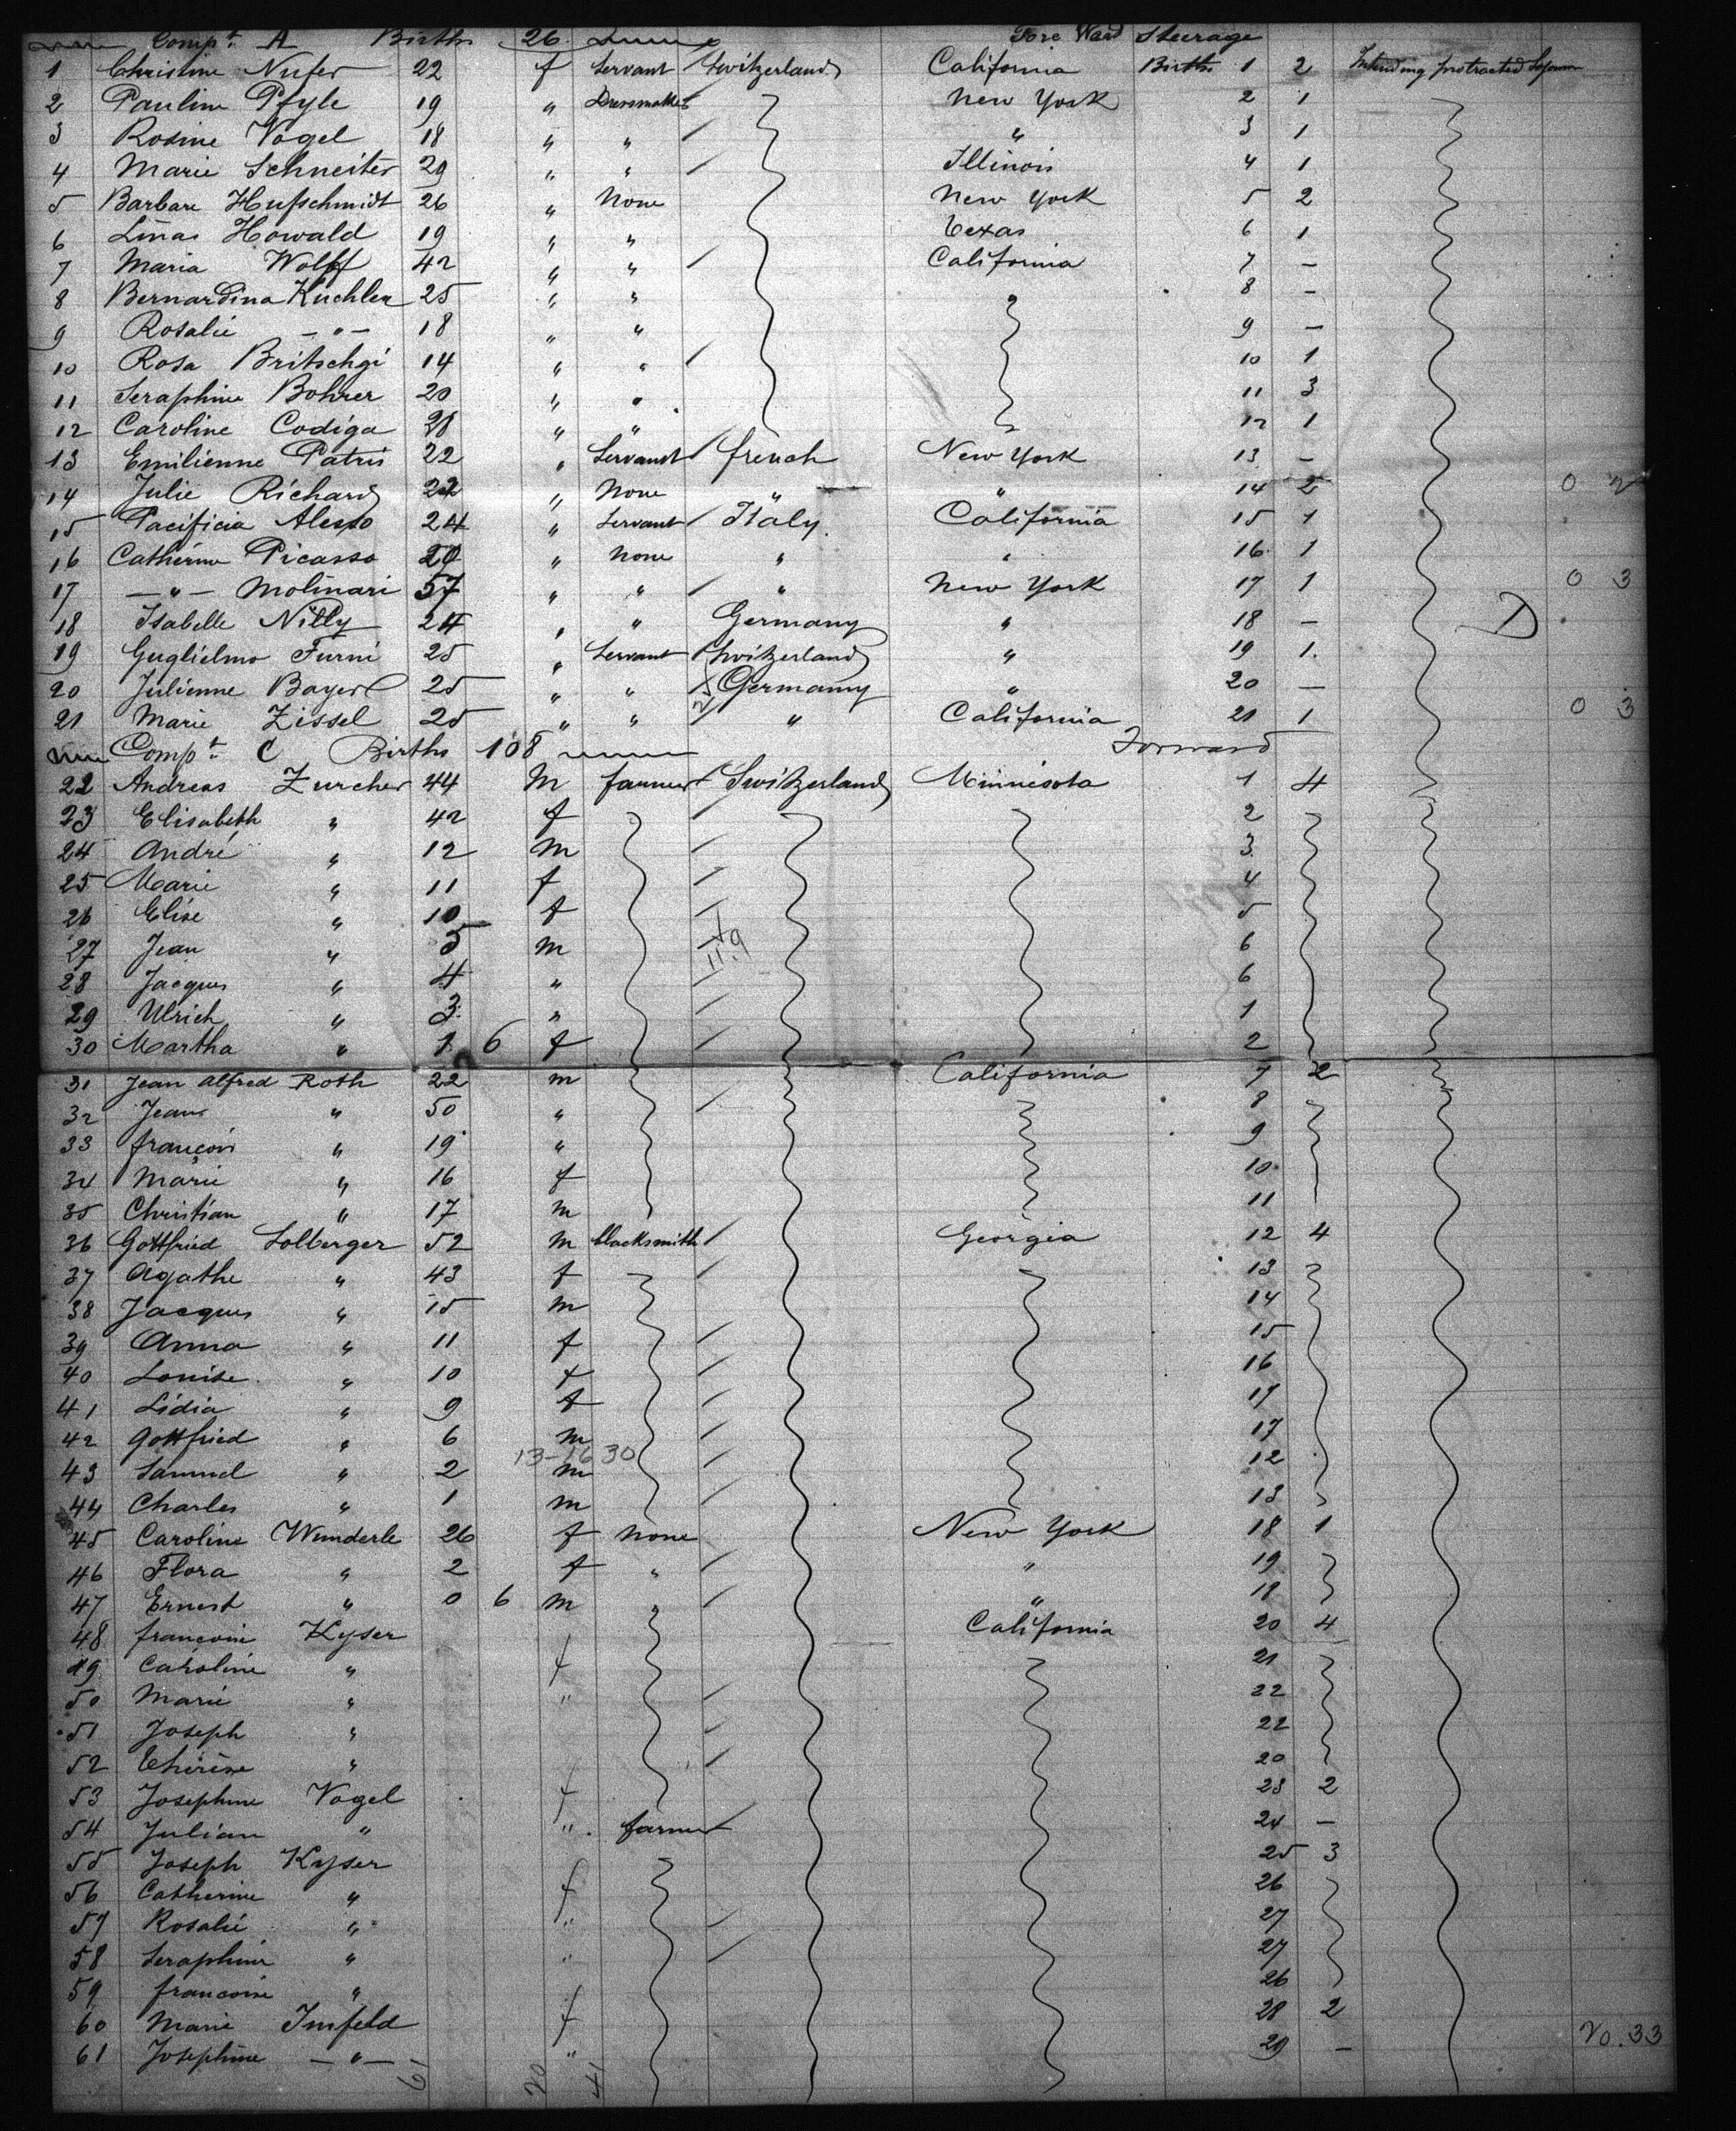 Compt. A Births 26 Fore Ward Steerage
1 Christine Nufer 22 f Servant Switzerland California Births 1 2 Intending protracted Sojourn
2 Pauline Pfyle 19 " Dressmaker New York 2 1
3 Rosine Vogel 18 " " " 3 1
4 Marie Schneiter 29 " " Illinois 4 1
5 Barbara Hufschmidt 26 " None New York 5 2
6 Linas Howald 19 " " Texas 6 1
7 Maria Wolff 42 " " California 7 –
8 Bernardina Kuchler 25 " " 8 –
9 Rosalie – " – 18 " " 9 –
10 Rosa Britschgi 14 " " 10 1
11 Seraphine Bohrer 20 " " 11 3
12 Caroline Codiga 28 " " 12 1
13 Emilienne Patris 22 " Servant french New York 13 –
14 Julie Richard 22 " None " " 14 2 0 2
15 Pacificia Alesso 24 " Servant Italy California 15 1
16 Catherine Picasso 20 " None " " 16 1
17 – " – Molinari 57 " " " New York 17 1 0 3
18 Isabelle Nilly 24 " " Germany " 18 – D
19 Guglielmo Furni 25 " Servant Switzerland " 19 1
20 Julienne Bayerl 25 " " Germany " 20 –
21 Marie Zissel 25 " " " California 21 1 0 3
Compt. C Births 108 Forward
22 Andreas Zurcher 44 M farmer Switzerland Minnesota 1 4
23 Elisabeth " 42 f 2
24 André " 12 m 3
25 Marie " 11 f 4
26 Elise " 10 f 5
27 Jean " 5 m 6
28 Jacques " 4 " 6
29 Ulrich " 3 " 1
30 Martha " 1 6 f 2
31 Jean Alfred Roth 22 m California 7 2
32 Jean " 50 " 8
33 françois " 19 " 9
34 Marie " 16 f 10
35 Christian " 17 m 11
36 Gottfried Solberger 52 m blacksmith Georgia 12 4
37 Agathe " 43 f 13
38 Jacques " 15 m 14
39 Anna " 11 f 15
40 Louise " 10 f 16
41 Lidia " 9 f 17
42 Gottfried " 6 m 17
13-1630
43 Samuel " 2 m 12
44 Charles " 1 m 13
45 Caroline Wunderle 26 f none New York 18 1
46 Flora " 2 f " " 19
47 Ernest " 0 6 m " " 18
48 françoise Kyser California 20 4
49 Caroline " f 21
50 Marie " " 22
51 Joseph " 22
52 Thérèse " 20
53 Josephine Vogel f 23 2
54 Julian " " farmer 24 –
55 Joseph Kyser 25 3
56 Catherine " f 26
57 Rosalie " " 27
58 Seraphine " " 27
59 françoise " 26
60 Marie Imfeld f 28 2
61 Josephine – " – " 29 –
20.33
61 20 41